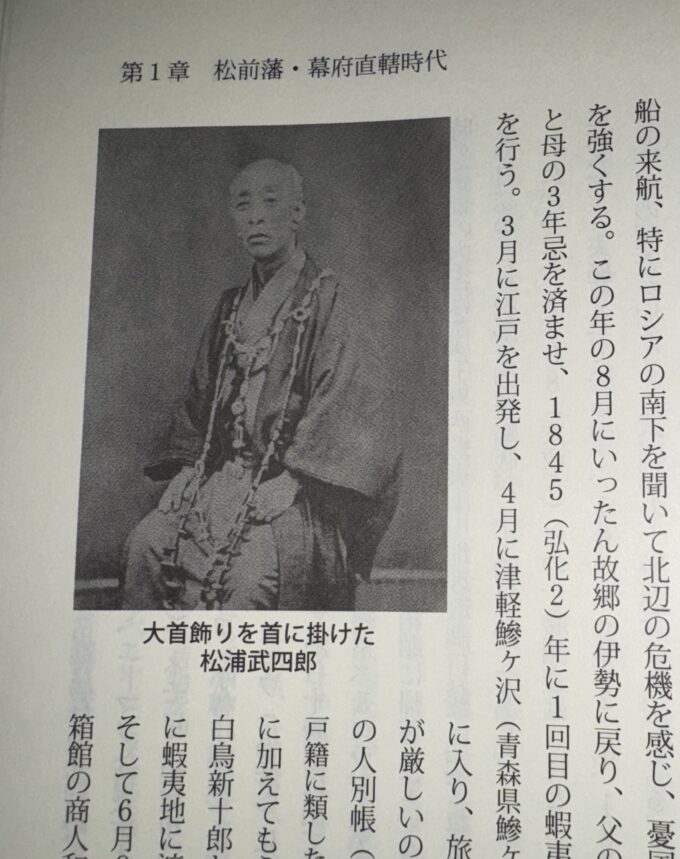 第1章　松前藩・幕府直轄時代
船の来航、特にロシアの南下を聞いて北辺の危機を感じ、憂国
を強くする。この年の8月にいったん故郷の伊勢に戻り、父の
と母の3年忌を済ませ、1845（弘化2）年に1回目の蝦夷
を行う。3月に江戸を出発し、4月に津軽鰺ヶ沢（青森県鰺ヶ
大首飾りを首に掛けた
松浦武四郎
に入り、旅
が厳しいの
の人別帳（
戸籍に類した
に加えても
白鳥新十郎
に蝦夷地に
そして6月
箱館の商人